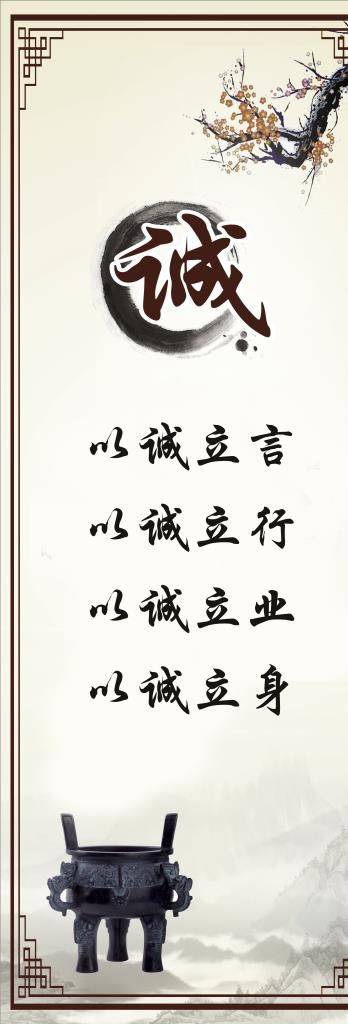 诚
以诚立言
以诚立行
以诚立业
以诚立身